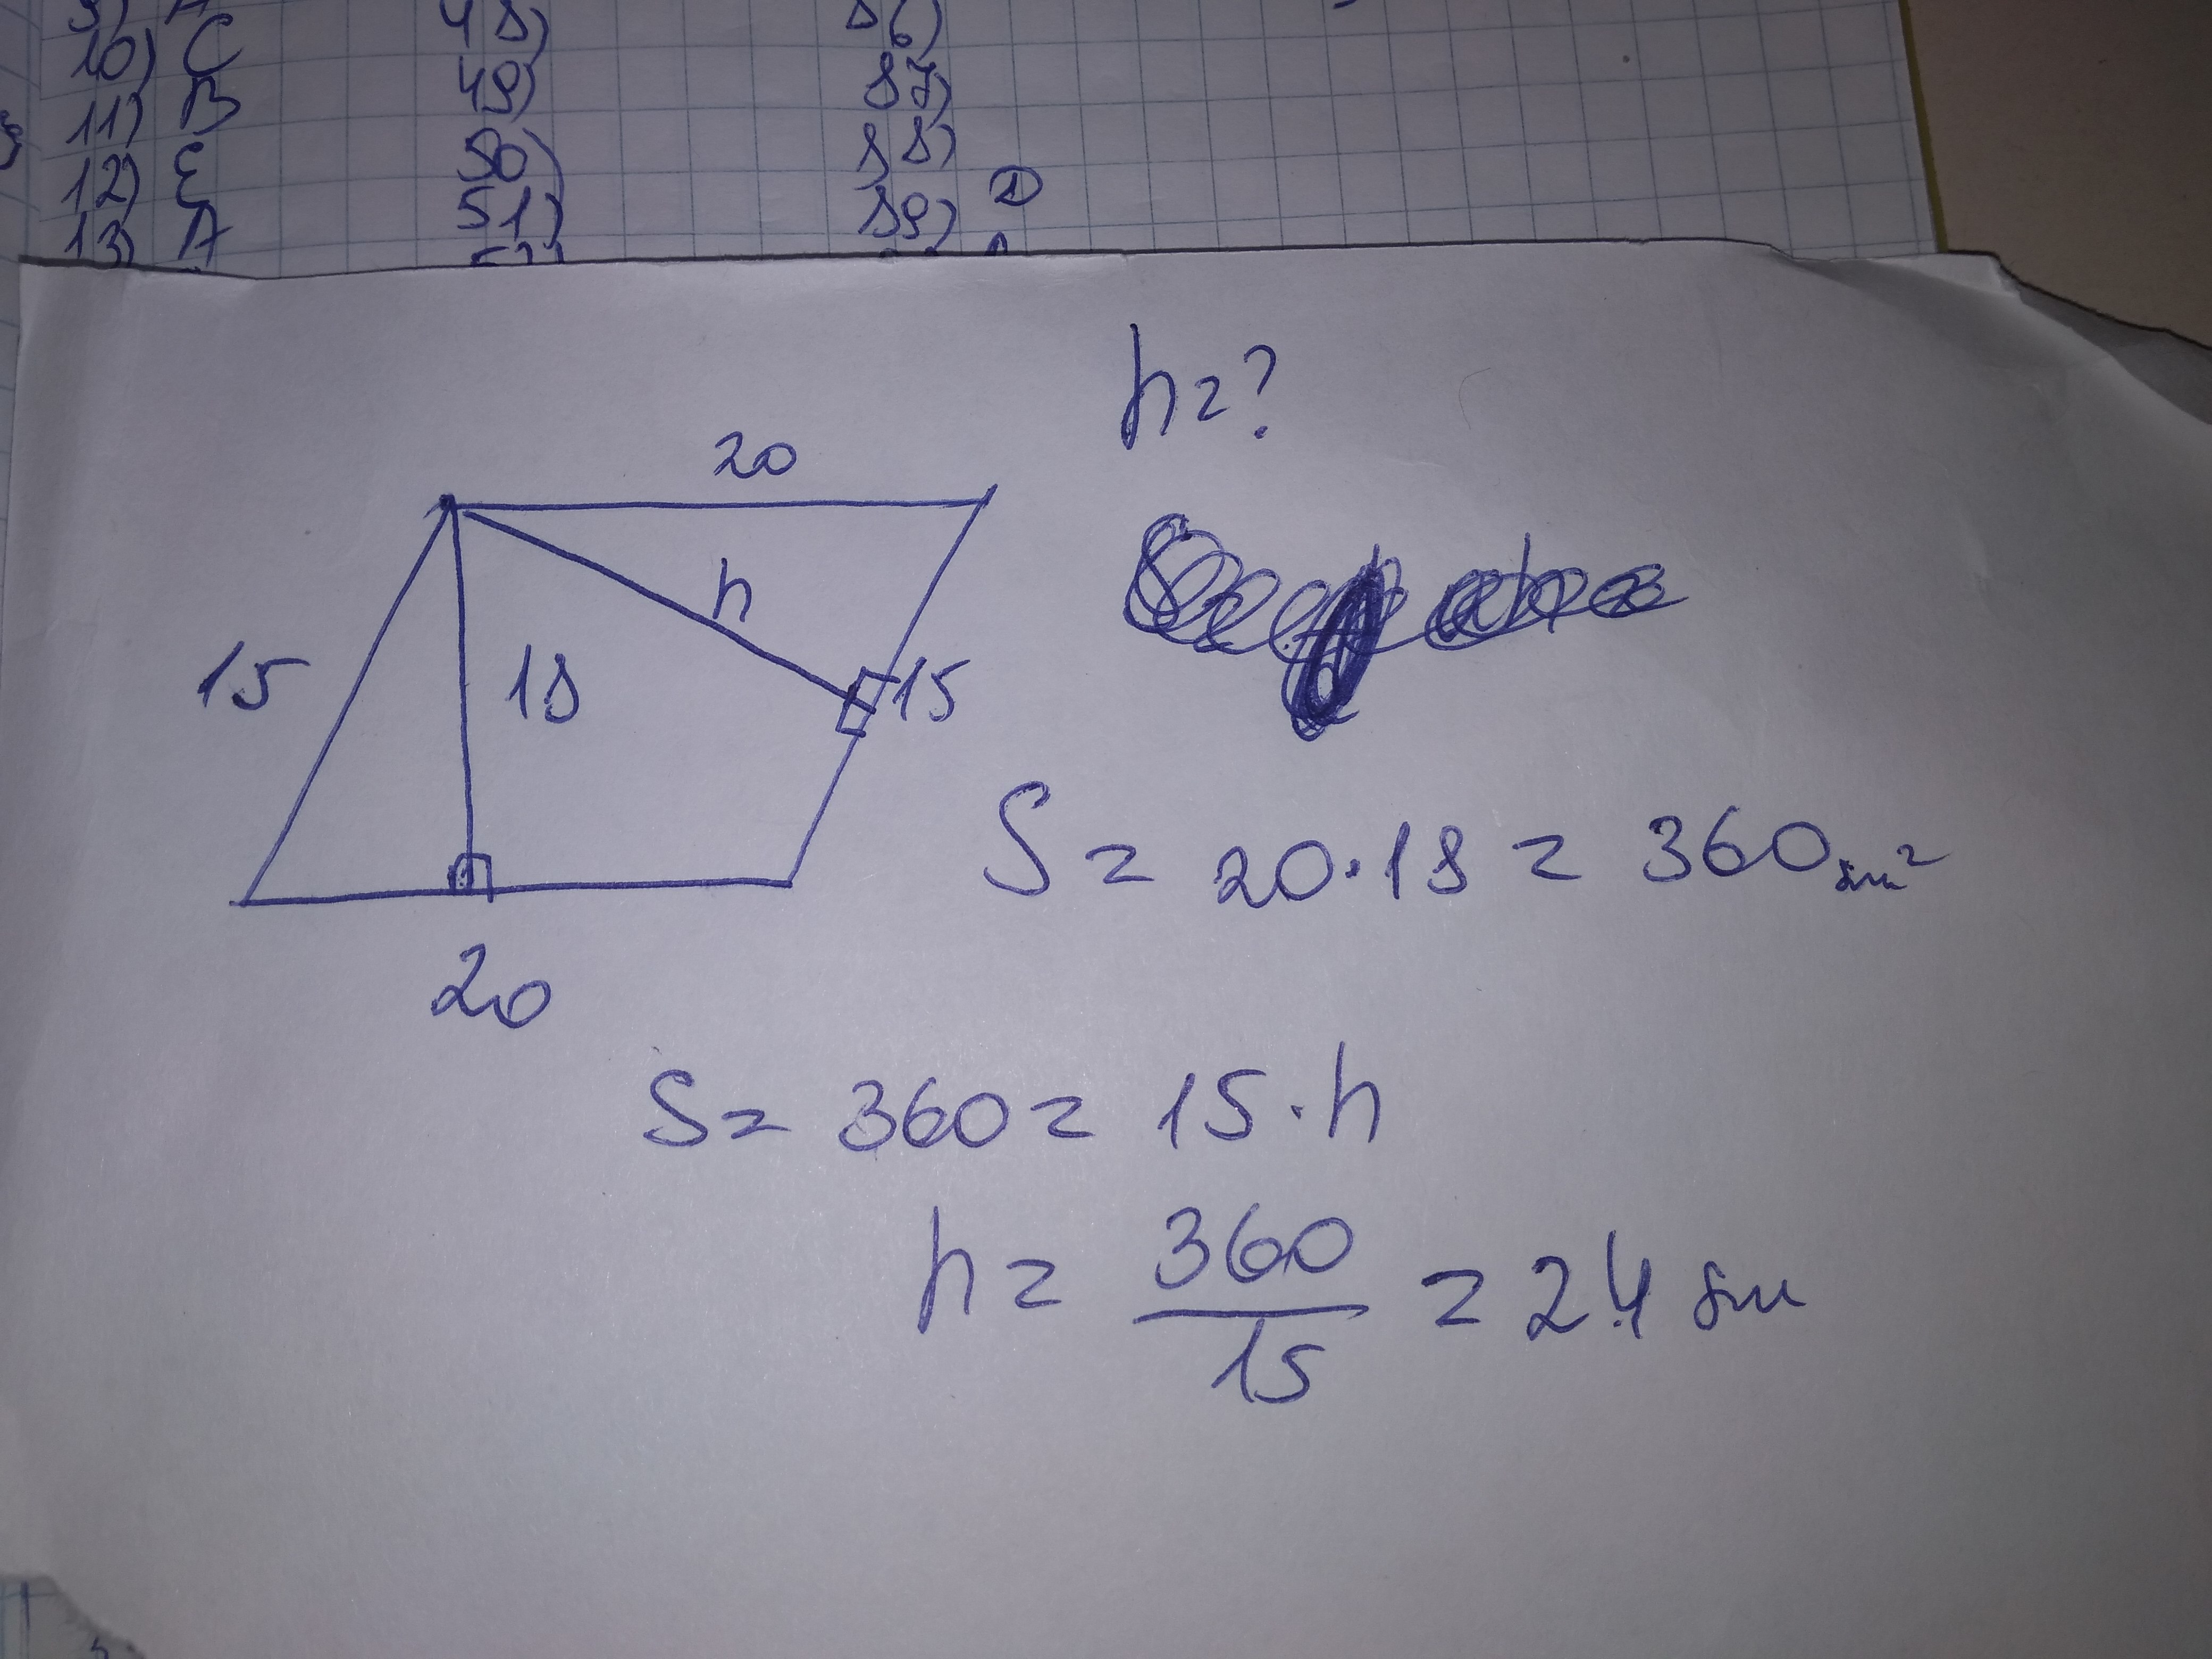 10) C 48) 86)
11) B 49) 87)
12) E 50) 88)
13) A 51) 89) D
h=?
20
h
15 18 15
S = 20·18 = 360 sm²
20
S = 360 = 15·h
h = 360/15 = 24 sm